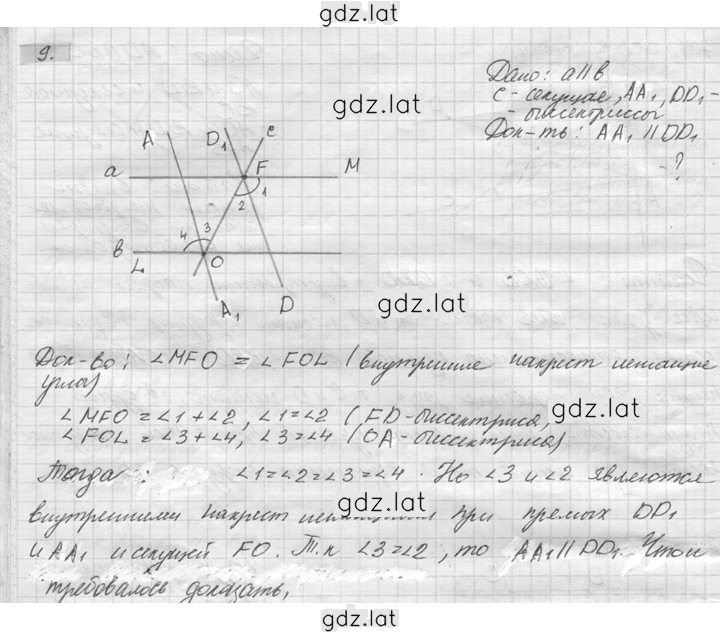 gdz.lat
9.
Дано: a||в
c - секущая, AA1, DD1 -
- биссектриссы
Док-ть: AA1 || DD1
- ?
gdz.lat
A D1 c
a F M
1
2
3
4
в
L O
A1 D
gdz.lat
Док-во: ∠MFO = ∠FOL (внутренние накрест лежащие
углы)
gdz.lat
∠MFO = ∠1+∠2, ∠1=∠2 (FD-биссектриса,
∠FOL = ∠3+∠4, ∠3=∠4 (OA-биссектриса)
Тогда : ∠1=∠2=∠3=∠4. Но ∠3 и ∠2 являются
gdz.lat
внутренними накрест при прямых DD1
и AA1 и секущей FO. Т.к ∠3=∠2, то AA1||DD1. Что и
gdz.lat
требовалось доказать.
gdz.lat